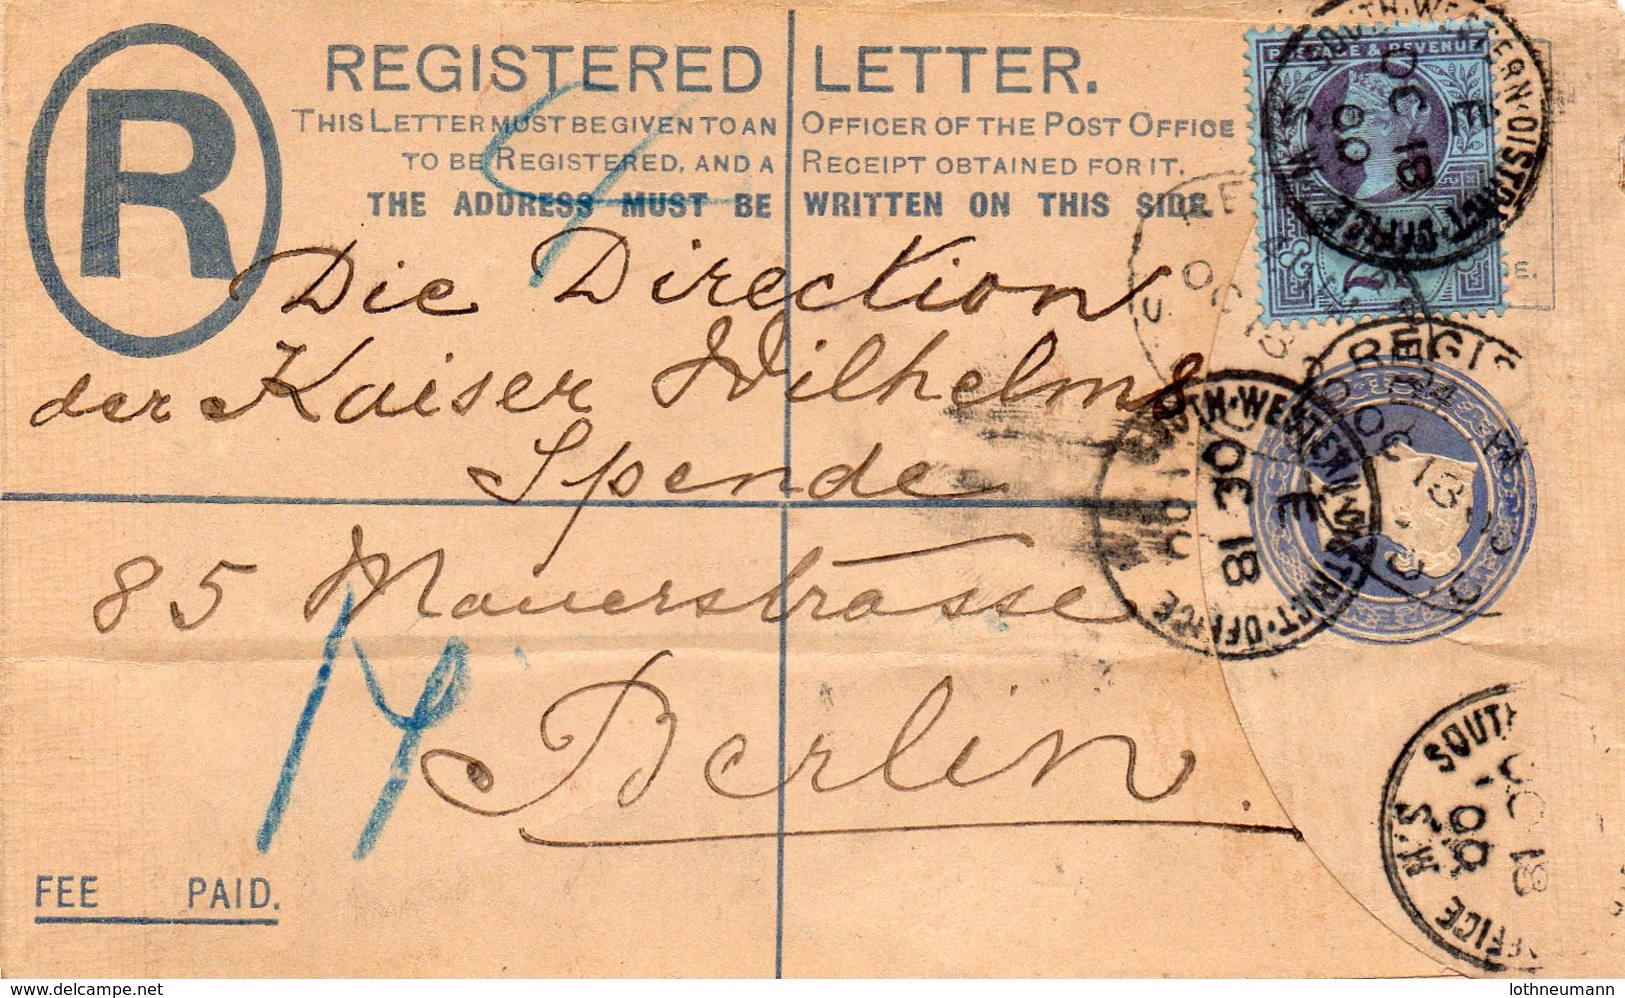 R
REGISTERED LETTER.
THIS LETTER MUST BE GIVEN TO AN OFFICER OF THE POST OFFICE
TO BE REGISTERED, AND A RECEIPT OBTAINED FOR IT.
THE ADDRESS MUST BE WRITTEN ON THIS SIDE
POSTAGE & REVENUE
SOUTH·WESTERN·DISTRICT·OFFICE
S.W
E
OC 18
00
Die Direction
der Kaiser Wilhelms
Spende
85 Mauerstrasse
Berlin.
REGIS
OC 18
SOUTH·WESTERN·DISTRICT·OFFICE
E
OC 18
00
14
SOUTH
OFFICE
S.W
OC 18
00
FEE PAID.
www.delcampe.net
lothneumann